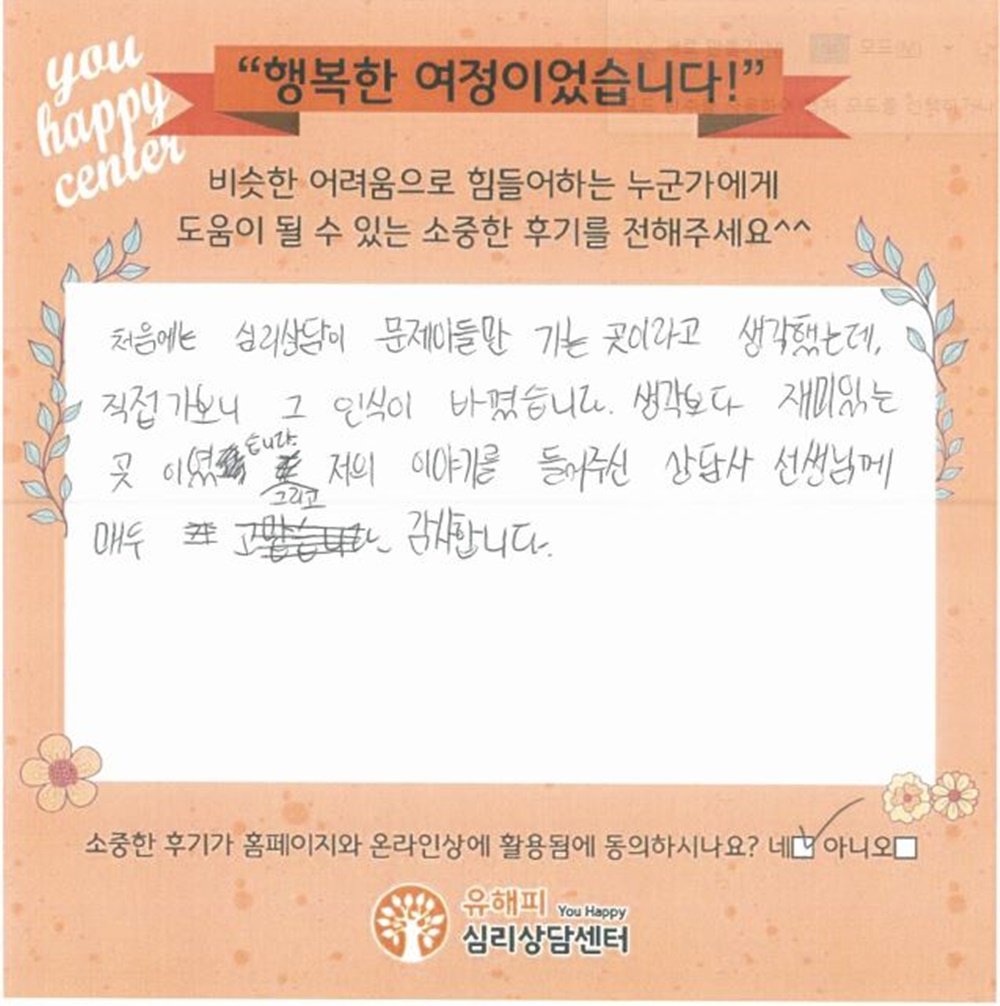 you
happy
center
“행복한 여정이었습니다!”
비슷한 어려움으로 힘들어하는 누군가에게
도움이 될 수 있는 소중한 후기를 전해주세요^^
처음에는 심리상담이 문제아들만 가는 곳이라고 생각했는데,
직접가보니 그 인식이 바꼈습니다. 생각보다 재미있는
곳 이였습니다. 그리고 저의 이야기를 들어주신 상담사 선생님께
매우 감사합니다.
소중한 후기가 홈페이지와 온라인상에 활용됨에 동의하시나요? 네 아니오
유해피 You Happy
심리상담센터